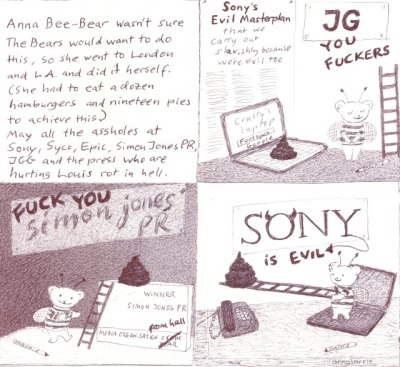 Anna Bee-Bear wasn't sure
The Bears would want to do
this, so she went to London
and L.A. and did it herself.
(She had to eat a dozen
hamburgers and nineteen pies
to achieve this)
May all the assholes at
Sony, Syco, Epic, Simon Jones PR,
JGG and the press who are
hurting Louis rot in hell.
Sony's
Evil Masterplan
that we
carry out
slavishly because
we're evil too
Cruelty's
Laptop
JG
YOU
FUCKERS
FUCK YOU
simon jones
PR
WINNER
SIMON JONES PR
from hell
MEDIA ORGANISATION OF THE
SONY
is EVIL
annabannie